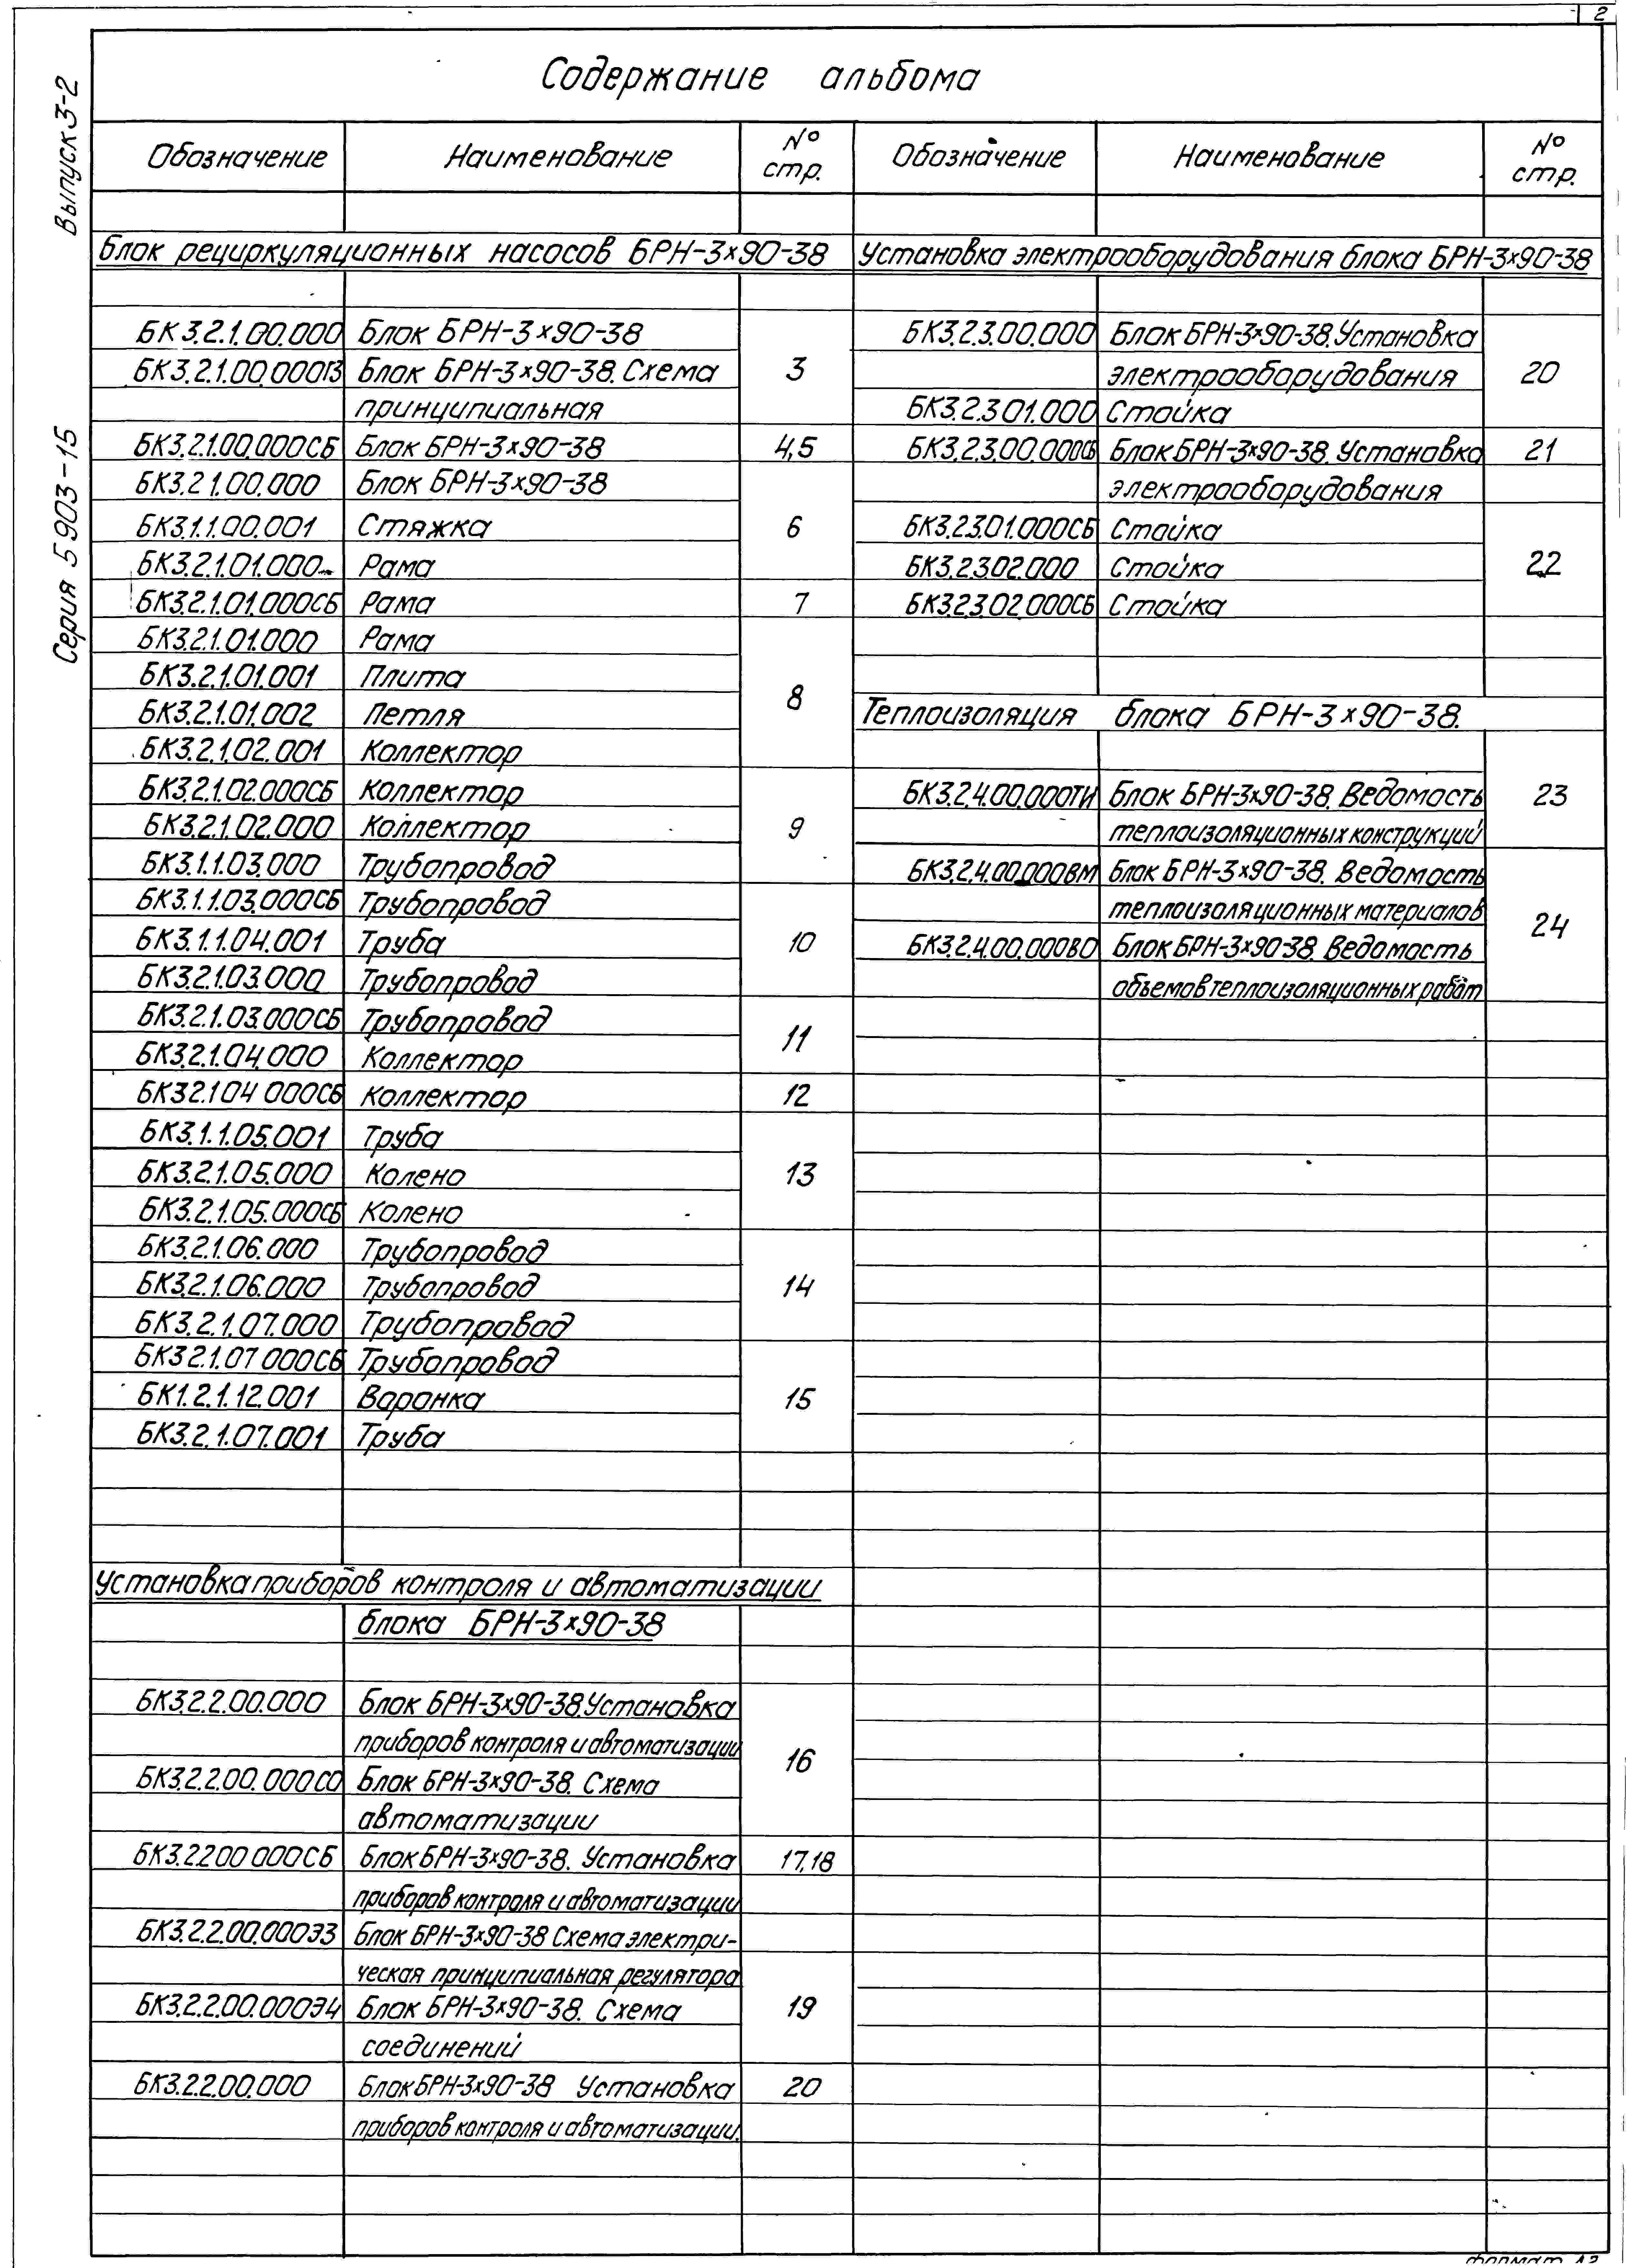 2
Выпуск 3-2
Серия 5903-15
Содержание альбома
Обозначение Наименование № стр.
Блок рециркуляционных насосов БРН-3×90-38
БК3.2.1.00.000 Блок БРН-3×90-38
БК3.2.1.00.000ПЗ Блок БРН-3×90-38. Схема 3
принципиальная
БК3.2.1.00.000СБ Блок БРН-3×90-38 4,5
БК3.2.1.00.000 Блок БРН-3×90-38
БК3.1.1.00.001 Стяжка 6
БК3.2.1.01.000 Рама
БК3.2.1.01.000СБ Рама 7
БК3.2.1.01.000 Рама
БК3.2.1.01.001 Плита
БК3.2.1.01.002 Петля 8
БК3.2.1.02.001 Коллектор
БК3.2.1.02.000СБ Коллектор
БК3.2.1.02.000 Коллектор 9
БК3.1.1.03.000 Трубопровод
БК3.1.1.03.000СБ Трубопровод
БК3.1.1.04.001 Труба 10
БК3.2.1.03.000 Трубопровод
БК3.2.1.03.000СБ Трубопровод
БК3.2.1.04.000 Коллектор 11
БК3.2.1.04 000СБ Коллектор 12
БК3.1.1.05.001 Труба
БК3.2.1.05.000 Колено 13
БК3.2.1.05.000СБ Колено
БК3.2.1.06.000 Трубопровод
БК3.2.1.06.000 Трубопровод 14
БК3.2.1.07.000 Трубопровод
БК3.2.1.07 000СБ Трубопровод
БК1.2.1.12.001 Воронка 15
БК3.2.1.07.001 Труба
Установка приборов контроля и автоматизации
блока БРН-3×90-38
БК3.2.2.00.000 Блок БРН-3×90-38. Установка
приборов контроля и автоматизации 16
БК3.2.2.00.000СО Блок БРН-3×90-38. Схема
автоматизации
БК3.2.2.00 000СБ Блок БРН-3×90-38. Установка 17,18
приборов контроля и автоматизации
БК3.2.2.00.000Э3 Блок БРН-3×90-38 Схема электри-
ческая принципиальная регулятора
БК3.2.2.00.000Э4 Блок БРН-3×90-38. Схема 19
соединений
БК3.2.2.00.000 Блок БРН-3×90-38 Установка 20
приборов контроля и автоматизации.
Обозначение Наименование № стр.
Установка электрооборудования блока БРН-3×90-38
БК3.2.3.00.000 Блок БРН-3×90-38. Установка
электрооборудования 20
БК3.2.3.01.000 Стойка
БК3.2.3.00.000СБ Блок БРН-3×90-38. Установка 21
электрооборудования
БК3.2.3.01.000СБ Стойка
БК3.2.3.02.000 Стойка 22
БК3.2.3.02.000СБ Стойка
Теплоизоляция блока БРН-3×90-38.
БК3.2.4.00.000ТИ Блок БРН-3×90-38. Ведомость 23
теплоизоляционных конструкций
БК3.2.4.00.000ВМ Блок БРН-3×90-38. Ведомость
теплоизоляционных материалов 24
БК3.2.4.00.000ВО Блок БРН-3×90-38. Ведомость
объемов теплоизоляционных работ